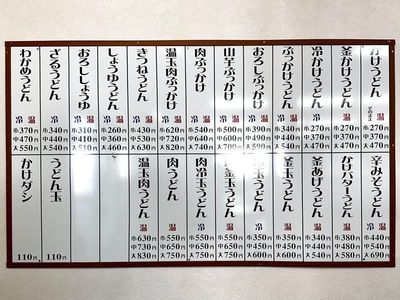 かけうどん
温
冷
小270円
中370円
大470円
釜かけうどん
温
小270円
中370円
大470円
冷かけうどん
冷
小270円
中370円
大470円
ぶっかけうどん
冷
温
小340円
中440円
大540円
おろしぶっかけ
冷
温
小390円
中490円
大590円
山芋ぶっかけ
冷
温
小500円
中600円
大700円
肉ぶっかけ
冷
温
小540円
中640円
大740円
温玉肉ぶっかけ
冷
温
小620円
中720円
大820円
きつねうどん
温
小430円
中530円
大630円
しょうゆうどん
冷
温
小260円
中360円
大460円
おろししょうゆ
冷
温
小310円
中410円
大510円
ざるうどん
冷
小340円
中440円
大540円
わかめうどん
冷
温
小370円
中470円
大550円
辛みそうどん
温
小440円
中540円
大690円
かけバターうどん
温
小380円
中480円
大580円
釜あげうどん
温
小340円
中440円
大540円
釜玉うどん
温
小350円
中450円
大600円
玉うどん
小350円
中450円
大600円
釜玉うどん
温
小550円
中650円
大750円
肉冷玉うどん
冷
小550円
中650円
大750円
肉うどん
温
小550円
中650円
大750円
温玉肉うどん
温
小630円
中730円
大830円
うどん玉
110円
かけダシ
110円